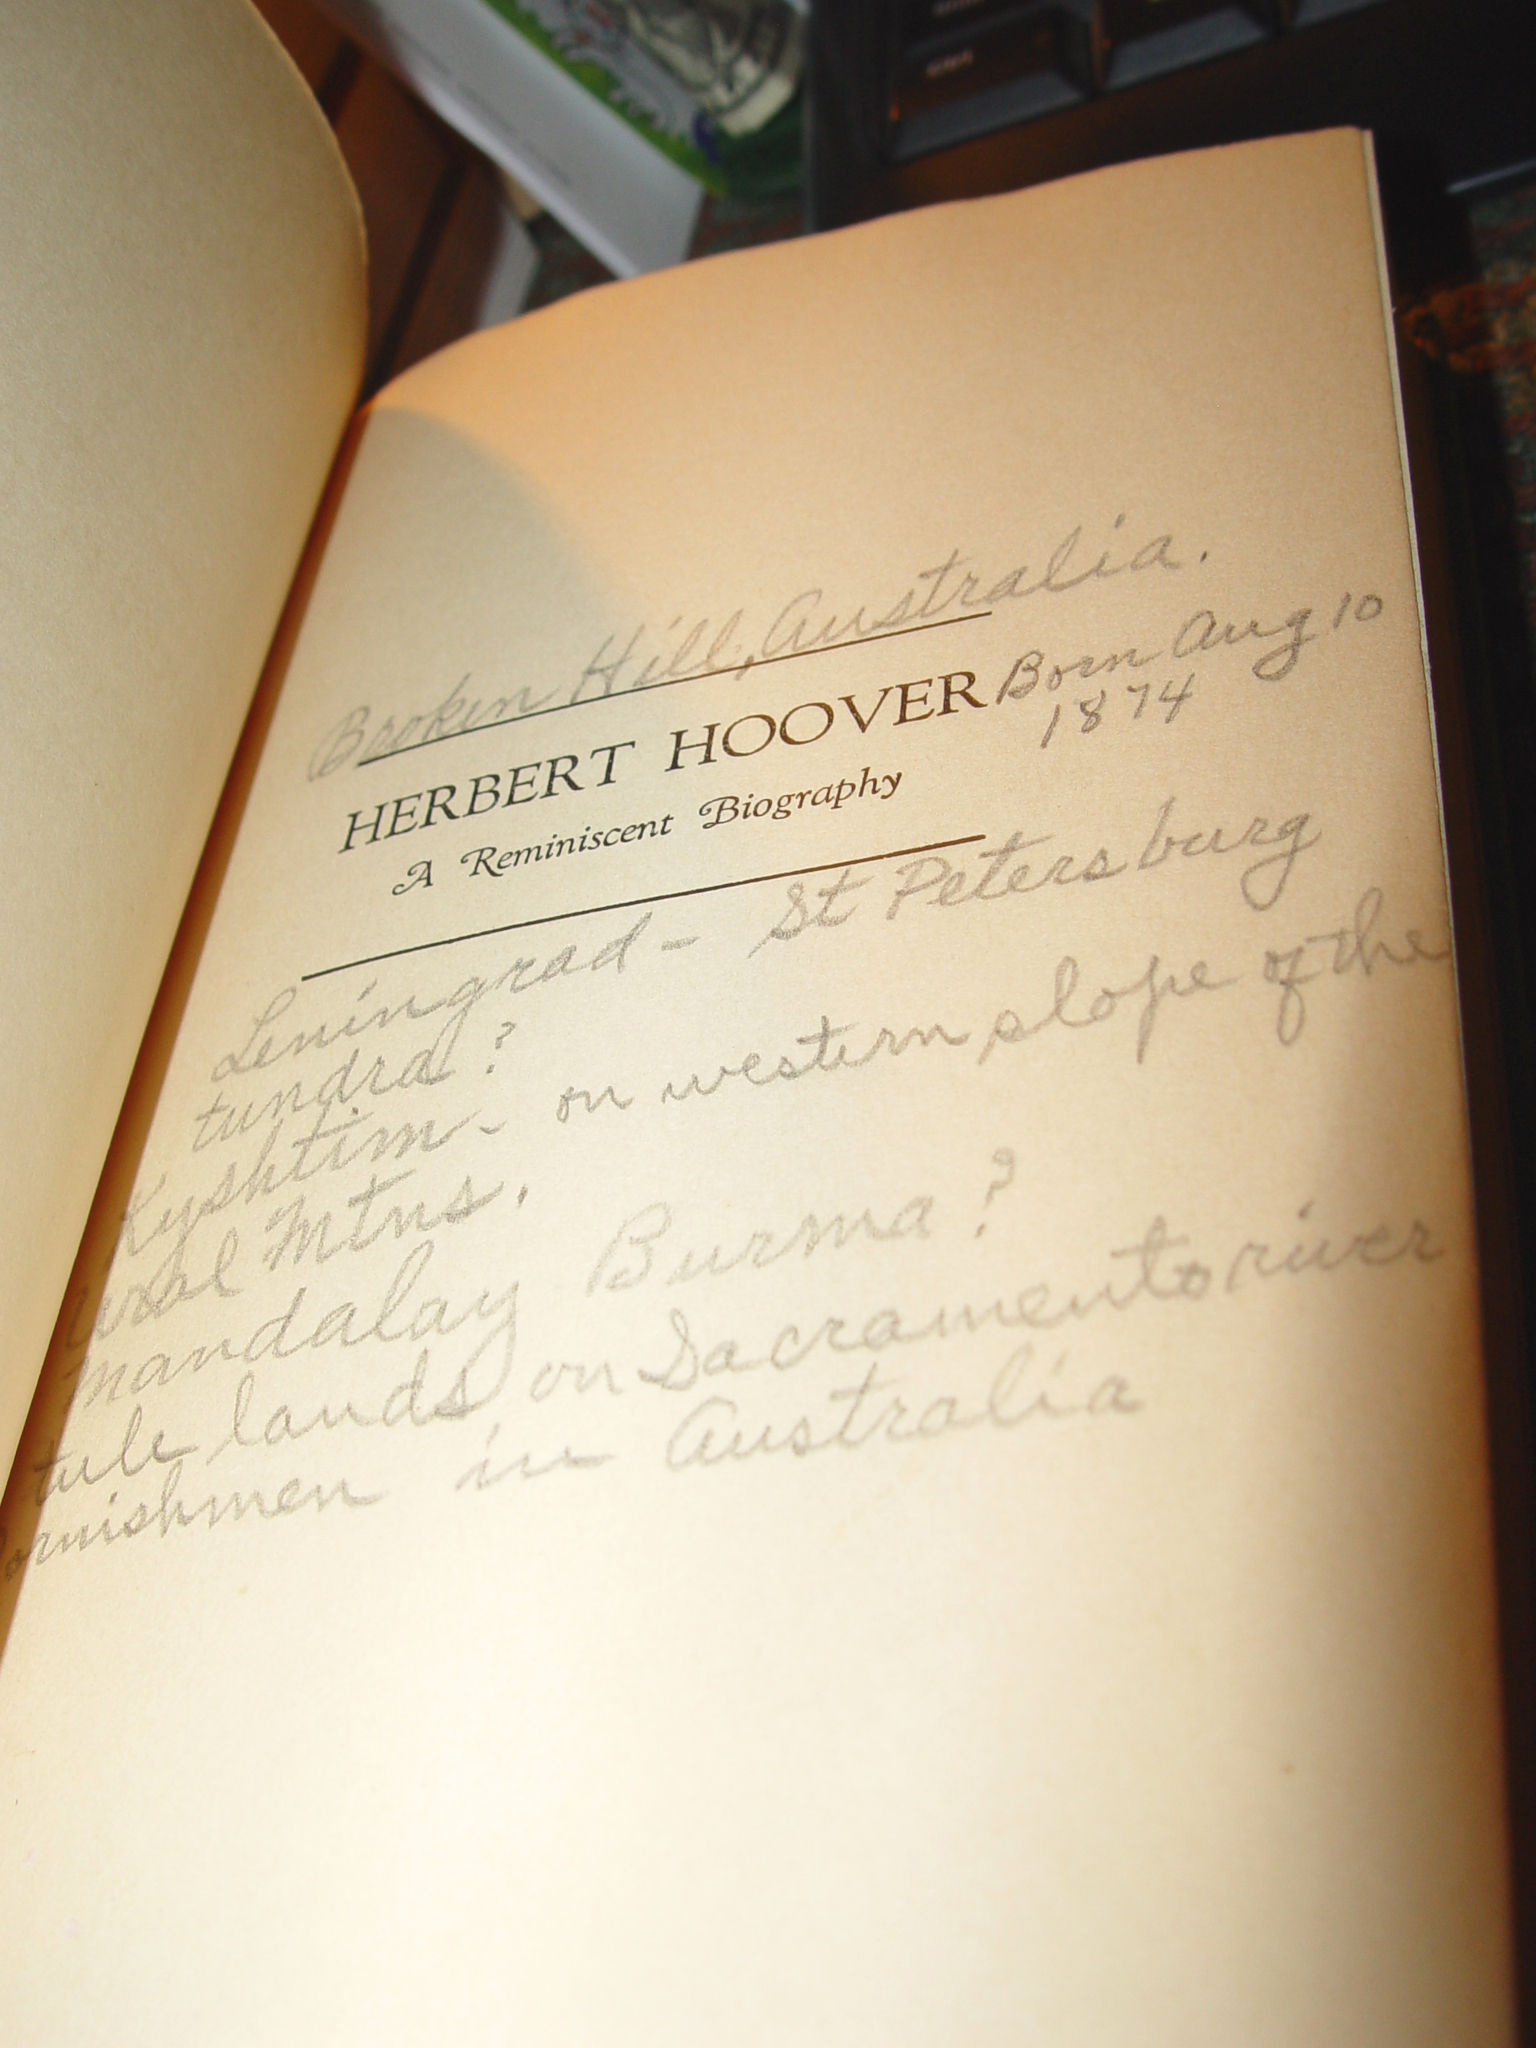 Broken Hill, Australia.
HERBERT HOOVER Born Aug 10
1874
A Reminiscent Biography
Leningrad - St Petersburg
tundra?
Kyshtim - on western slope of the
Ural Mtns.
Mandalay Burma?
tule lands on Sacramento river
Cornishmen in Australia